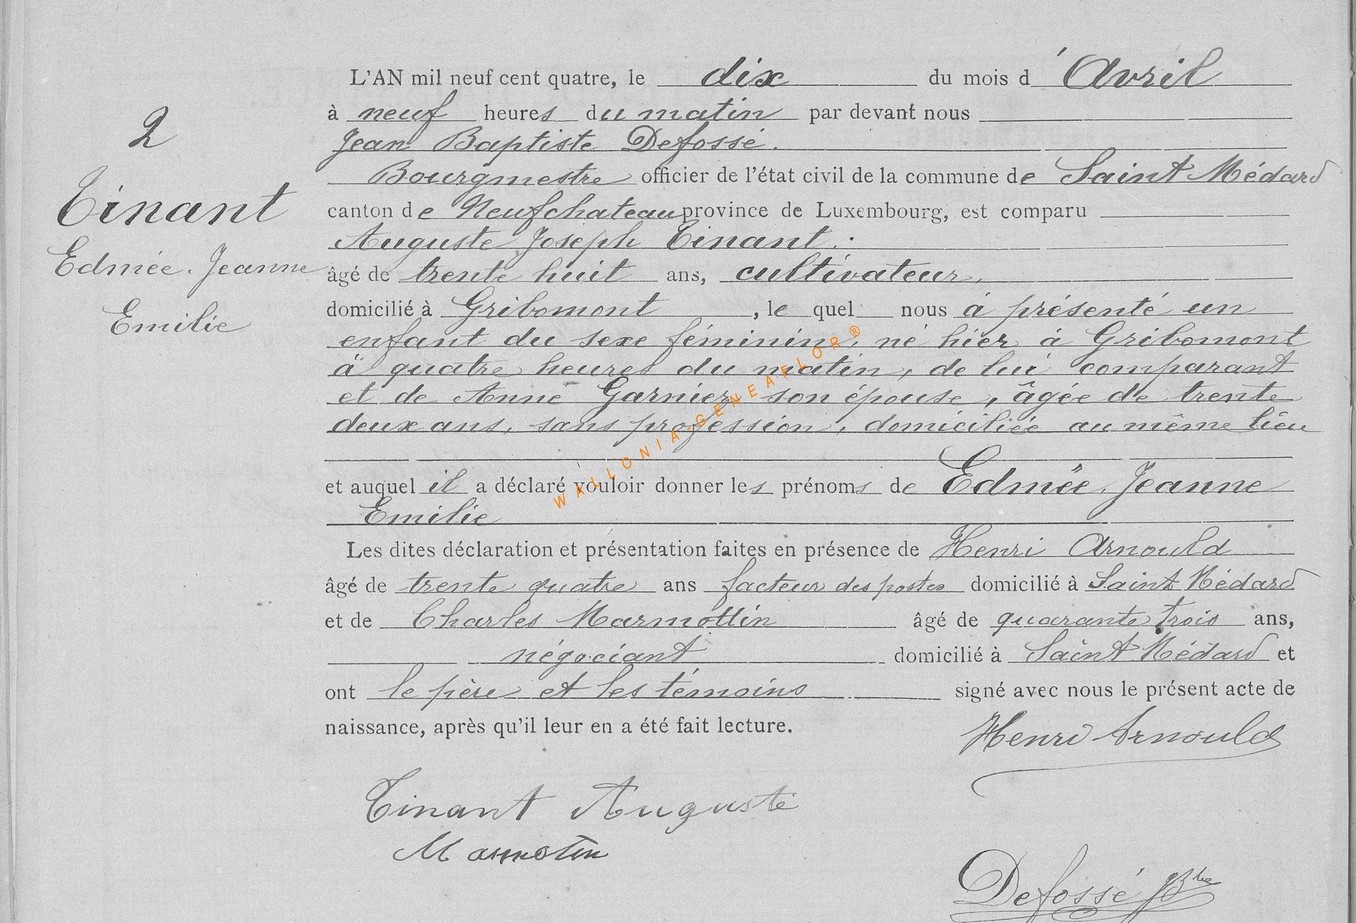 2
Tinant
Edmée Jeanne
Emilie
L'AN mil neuf cent quatre, le dix du mois d'Avril
à neuf heures du matin par devant nous
Jean Baptiste Defossé.
Bourgmestre officier de l'état civil de la commune de Saint Médard
canton de Neufchateau province de Luxembourg, est comparu
Auguste Joseph Tinant.
âgé de trente huit ans, cultivateur,
domicilié à Gribomont, le quel nous à présenté un
enfant du sexe féminin, né hier à Gribomont
à quatre heures du matin, de lui comparant
et de Anne Garnier son épouse, âgée de trente
deux ans, sans profession, domiciliée au même lieu
et auquel il a déclaré vouloir donner les prénoms de Edmée Jeanne
Emilie
Les dites déclaration et présentation faites en présence de Henri Arnould
âgé de trente quatre ans facteur des postes domicilié à Saint Médard
et de Charles Marmottin âgé de quarante trois ans,
négociant domicilié à Saint Médard et
ont le père et les témoins signé avec nous le présent acte de
naissance, après qu'il leur en a été fait lecture.
Henri Arnould
Tinant Auguste
Marmotin
Defossé JBte
WALLONIA-GENEAFLOR®